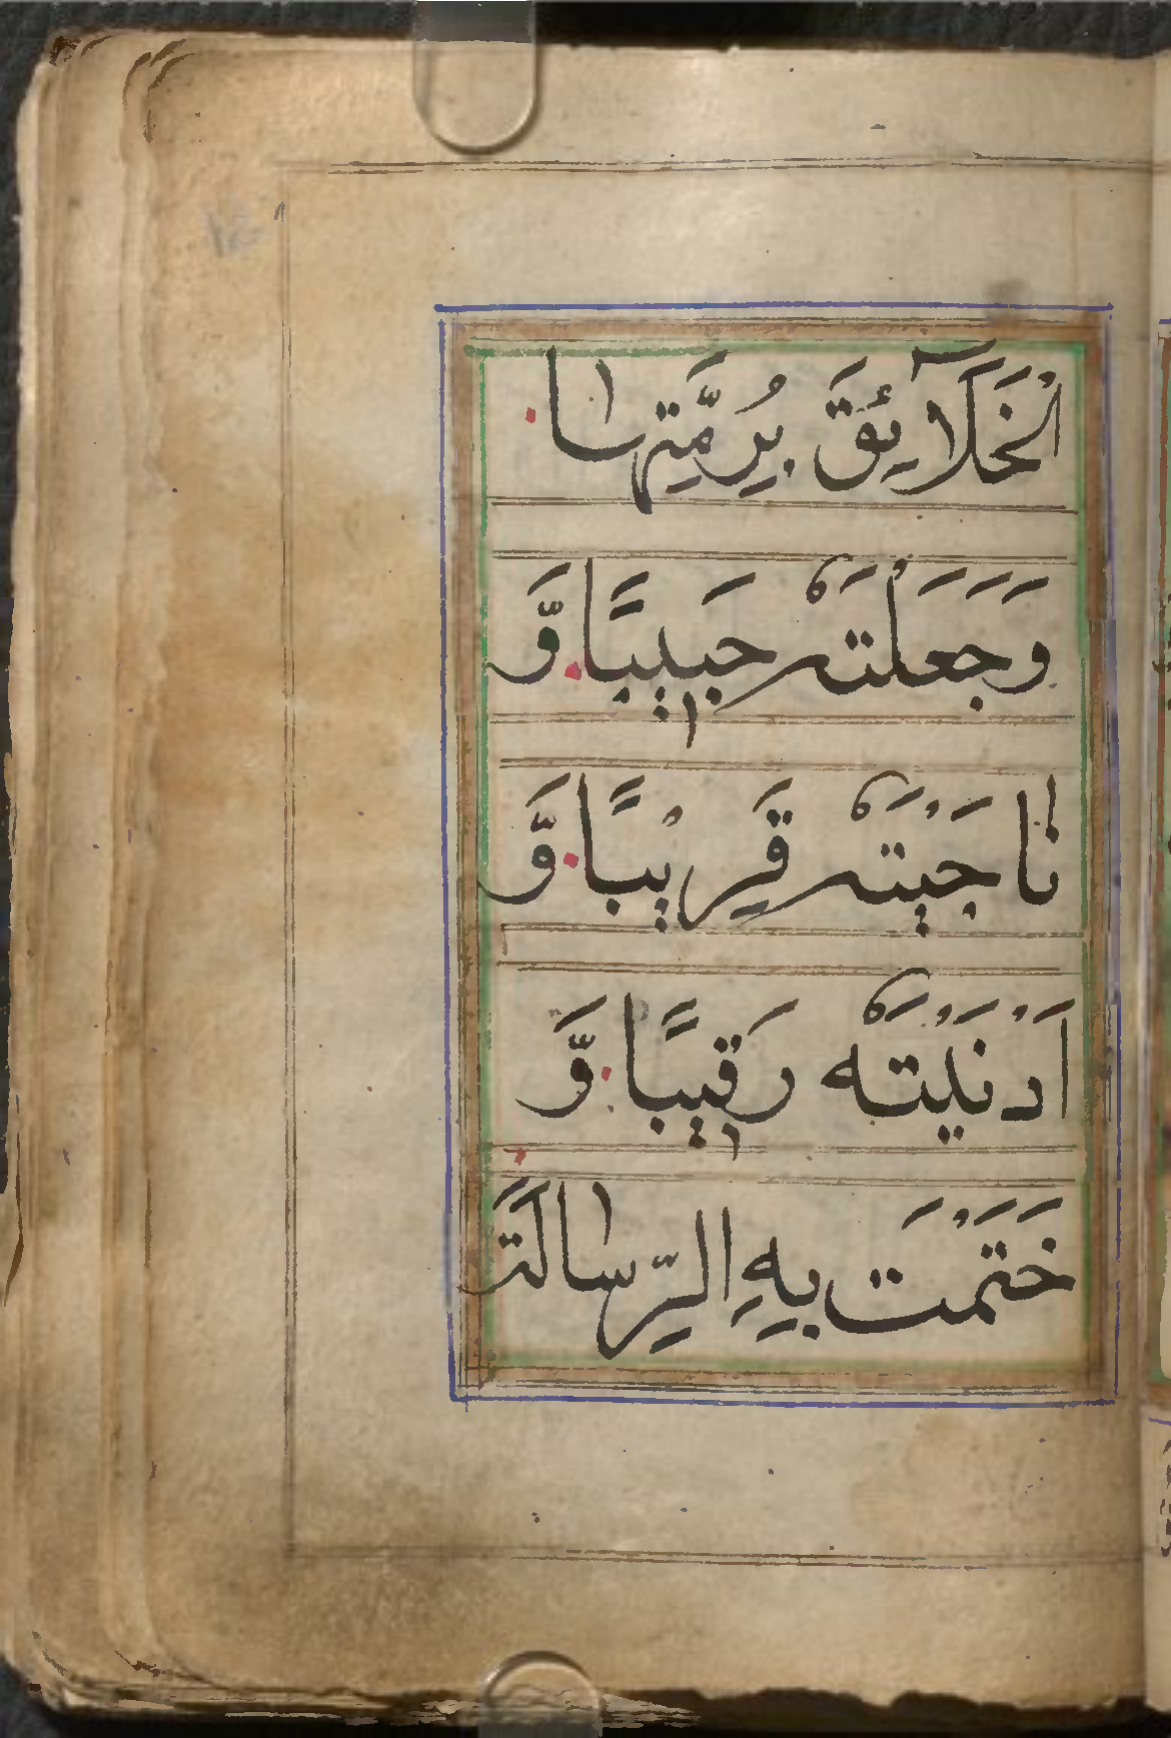 الْخَلَآئِقَ بِرُمَّتِهَا
وَجَعَلْتَهٗ حَبِيبًا وَّ
نَاجَيْتَهٗ قَرِيْبًا وَّ
اَدْنَيْتَهٗ رَقِيبًا وَّ
خَتَمْتَ بِهِ الرِّسَالَتَ